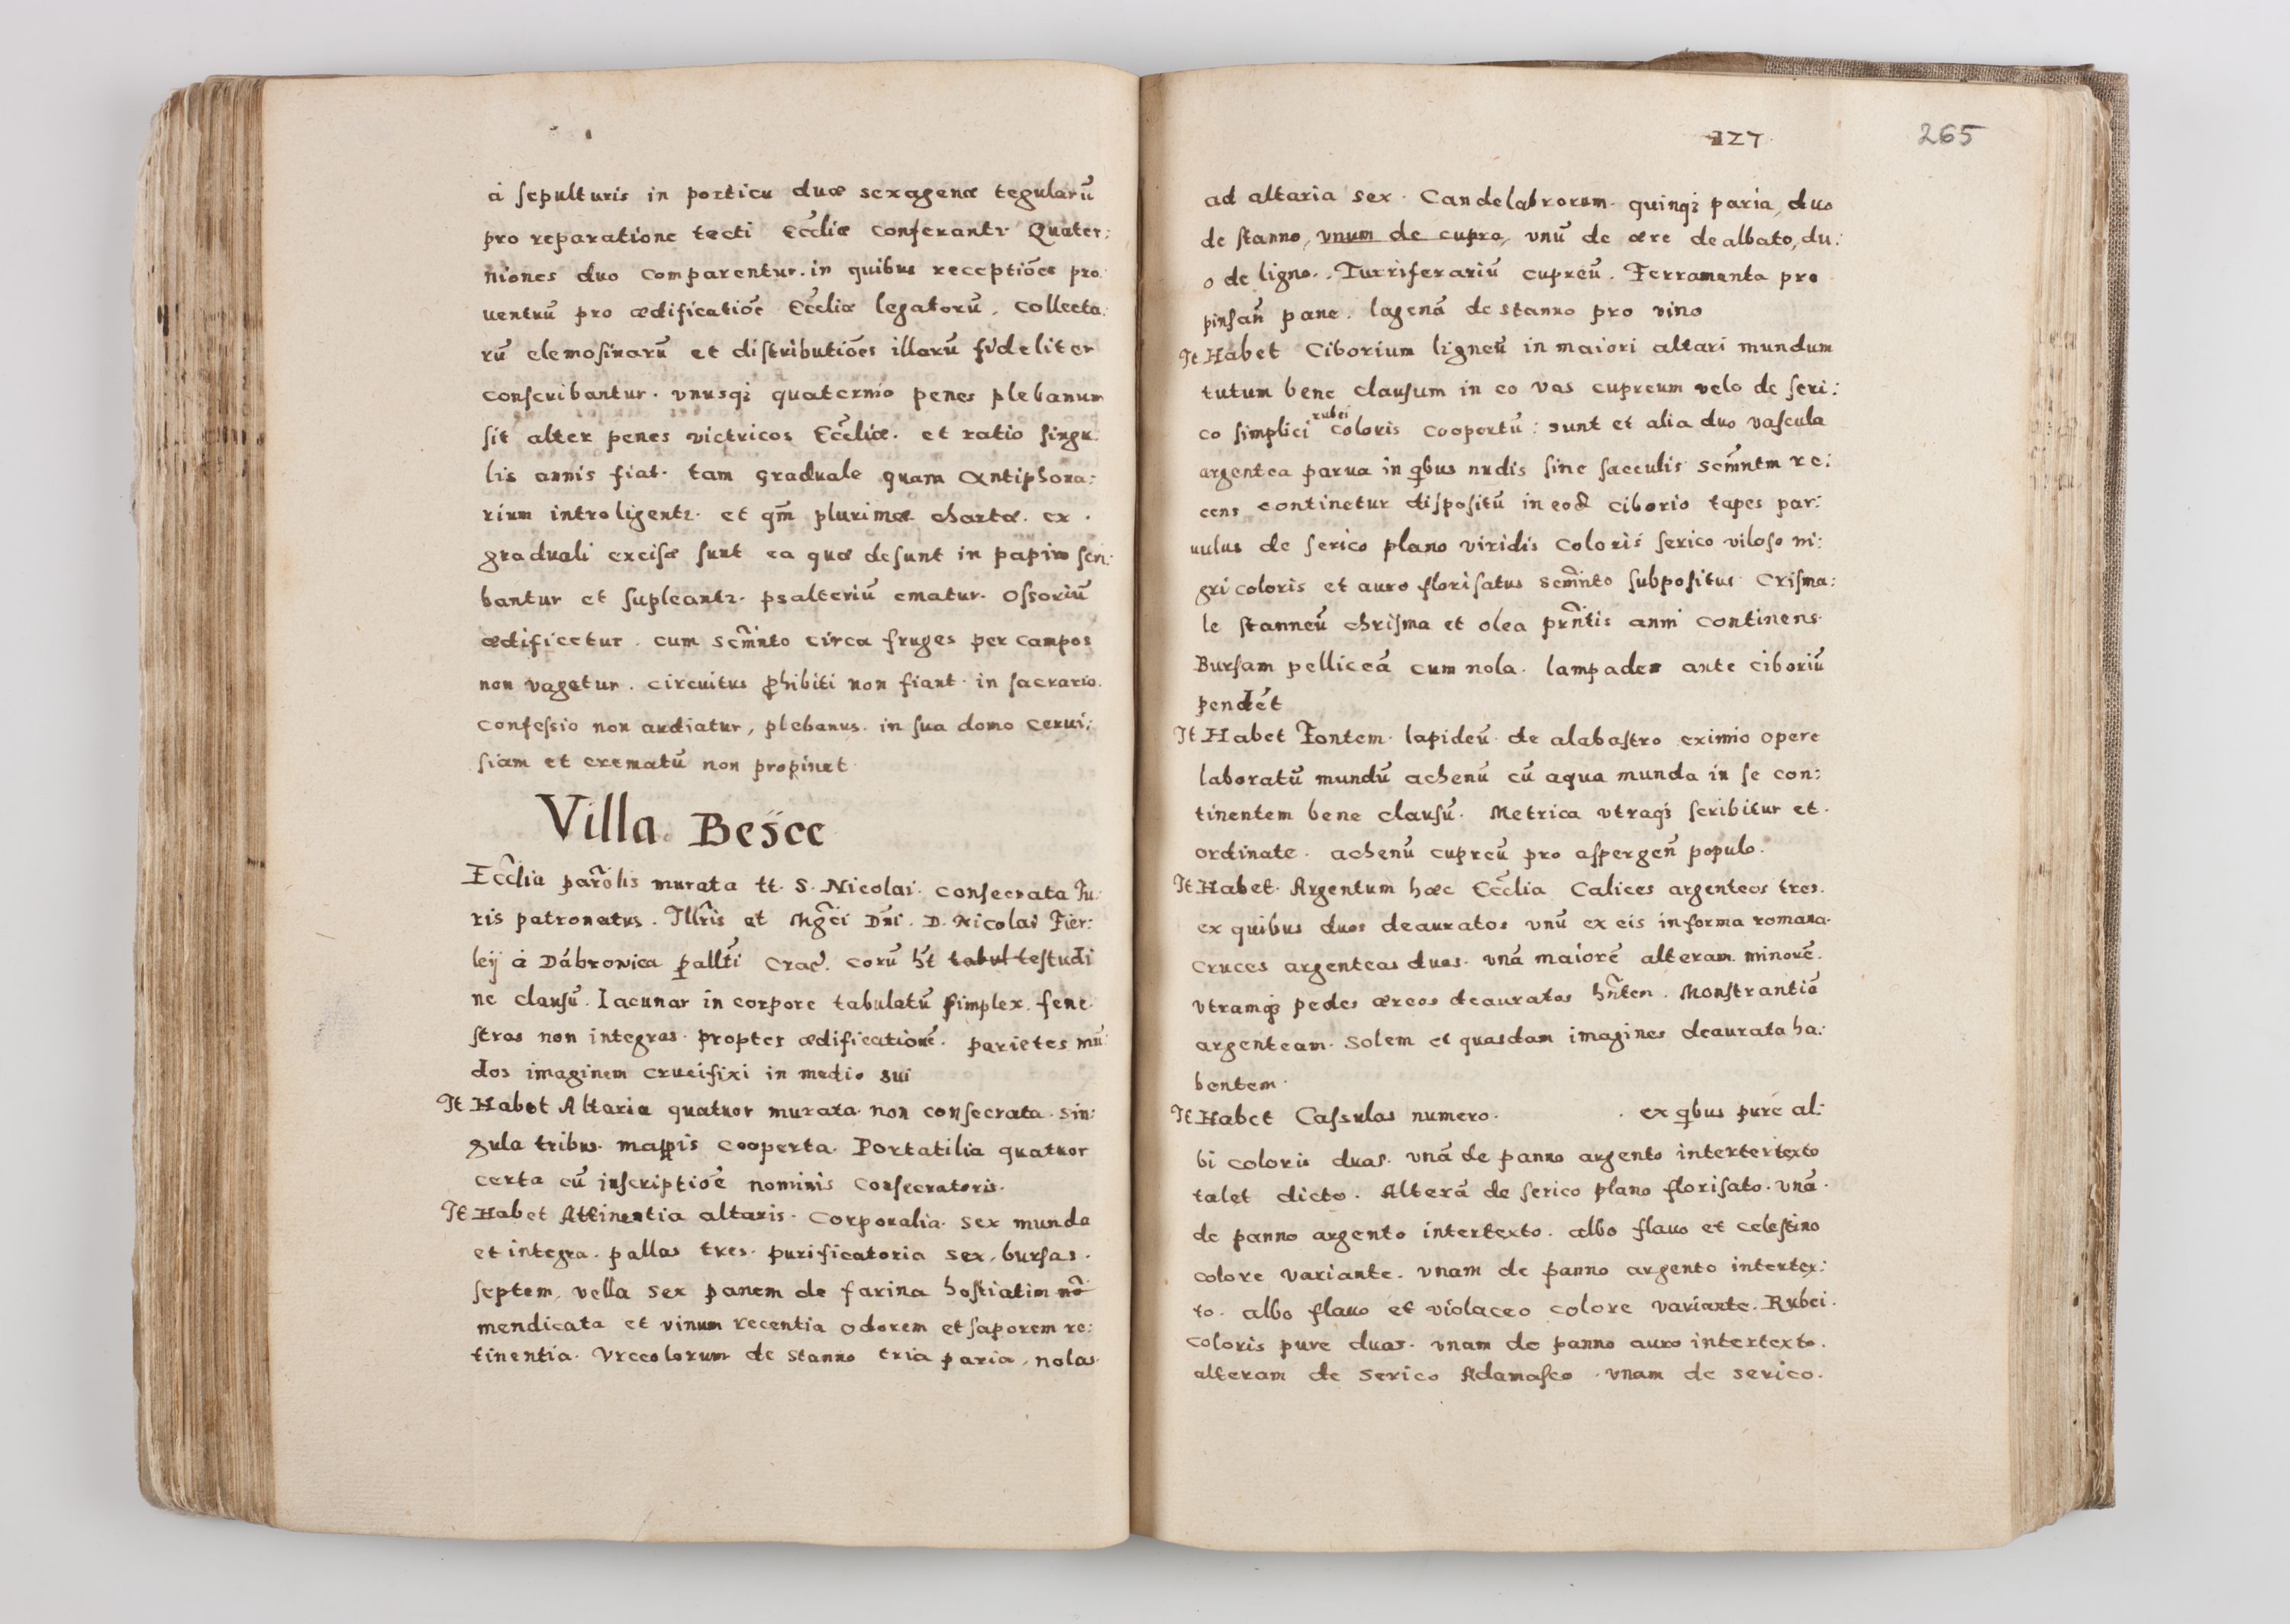 à sepulturis in porticu duæ sexagenæ tegularū
pro reparatione tecti Eccliæ conferantr Quater:
niones duo comparentur. in quibus receptiões pro
uentuū pro ædificatiōe Eccliæ legatorū, collecta:
rū elemosinarū et distributiões illarū fideliter
conscribantur. vnusq; quaternio penes plebanum
sit alter penes victricos Eccliæ. et ratio singu
lis annis fiat. tam graduale quam Antiphona:
rium introligentr. et qm̄ plurimæ chartæ. ex.
graduali excisæ sunt ea quæ desunt in papiro scri:
bantur et supleantr. psalteriū ematur. Ossoriū
ædificetur. cum scm̄nto circa fruges per campos
non vagetur. circuitus prohibiti non fiant. in sacrario.
confessio non audiatur, plebanus. in sua domo cerui:
siam et crematū non propinet.
Villa. Besce
Ecclia parōlis murata tt. S. Nicolai. consecrata Iu:
ris patronatus. Illris et Mgci Dni. D. Nicolai Fier:
leij à Dábrowica pallti Crac. corū ht tabul testudi
ne clausū. Lacunar in corpore tabulatū simplex. fene
stras non integras. propter ædificationē. parietes mū:
dos imaginem crucifixi in medio sui
It Habet Altaria quatuor murata non consecrata. sin:
gula tribus. mappis cooperta. Portatilia quatuor
certa cū inscriptiōe nominis consecratoris.
It Habet Attinentia altaris. Corporalia. sex munda
et integra. pallas tres. purificatoria sex, bursas.
septem, vella sex panem de farina hostiatim nō
mendicata et vinum recentia odorem et saporem re:
tinentia. Vrceolorum de stanno tria paria, nolas.
127.
265
ad altaria sex. Candelabrorum. quinq; paria, duo
de stanno, vnum de cupro, vnū de ære dealbato, du:
o de ligno. Turriferariū cupreū. Ferramenta pro
pinsan̄ pane. lagenā de stanno pro vino
It Habet Ciborium ligneū in maiori altari mundum
tutum bene clausum in eo vas cupreum velo de seri:
co simplici rubei coloris coopertū: sunt et alia duo vascula
argentea parua in qbus nudis sine sacculis scm̄ntm re:
cens continetur dispositū in eod ciborio tapes par:
uulus de serico plano viridis coloris serico viloso ni:
gri coloris et auro florisatus scm̄nto subpositus Crisma:
le stanneū chrisma et olea prn̄tis anni continens.
Bursam pelliceā cum nola. lampadem ante ciboriū
pendēt
It Habet Fontem. lapideū. de alabastro eximio opere
laboratū mundū achenū cū aqua munda in se con:
tinentem bene clausū. Metrica vtraq; scribitur et.
ordinate. achenū cupreū pro aspergen̄ populo.
It Habet. Argentum hæc Ecclia Calices argenteos tres.
ex quibus duos deauratos vnū ex eis in forma romana.
cruces argenteas duas. vnā maiorē alteram minorē.
vtramq; pedes æreos deauratos hn̄tem. Monstrantiā
argenteam. Solem et quasdam imagines deaurata ha:
bentem.
It Habet Cassulas numero. . ex qbus pure al:
bi coloris duas. vnā de panno argento intertertexto
talet dicto. Alterā de serico plano florisato. vnā.
de panno argento intertexto. albo flauo et celestino
colore variante. vnam de panno argento intertex:
to. albo flauo et violaceo colore variante. Rubei.
coloris pure duas. vnam de panno auro intertexto.
alteram de serico Adamasco. vnam de serico.